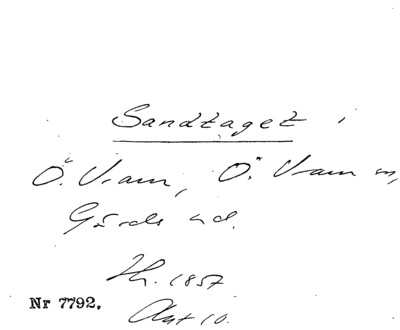 Sandtaget i
Ö. Vram, Ö. Vram sn,
Gärds hd.
Hr. 1857
Nr 7792.
Akt 10.